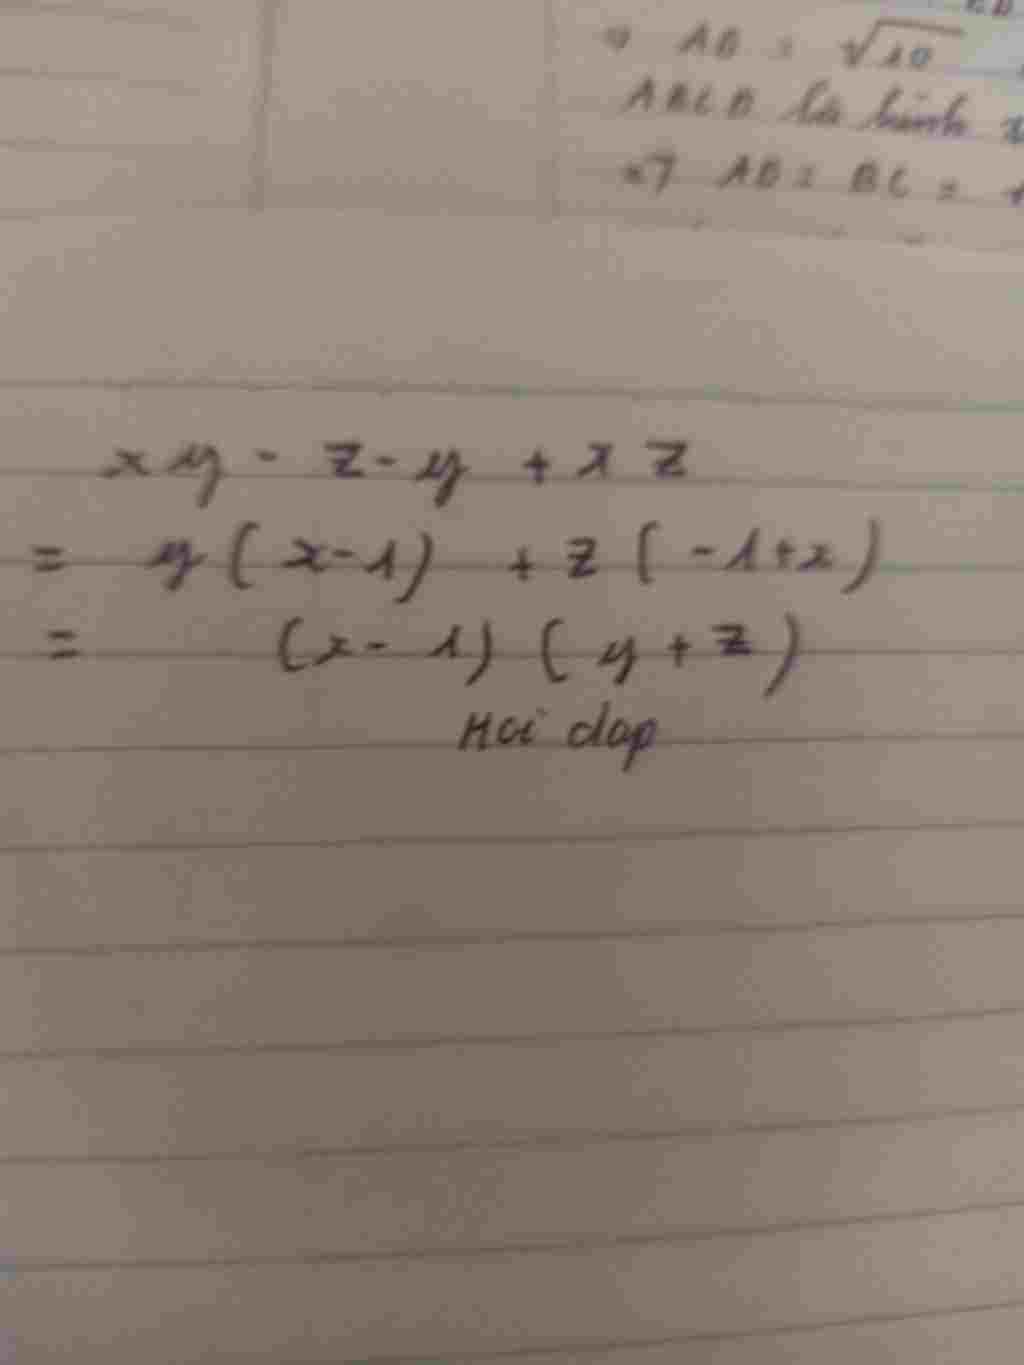 => AB = √10
ABCD là hình
=> AB = BC =
xy - z - y + xz
= y(x-1) + z(-1+x)
= (x-1)(y+z)
Hoi dap